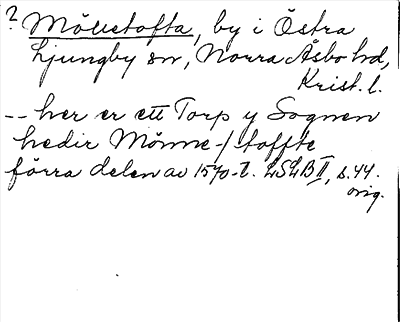 ? Möllestofta, by i Östra
Ljungby sn, Norra Åsbo hd,
Krist. l.
-- her er ett Torp y Sognen
hedir Mönne-/toffte
förra delen av 1570-t. LSLB II, s. 44.
orig.